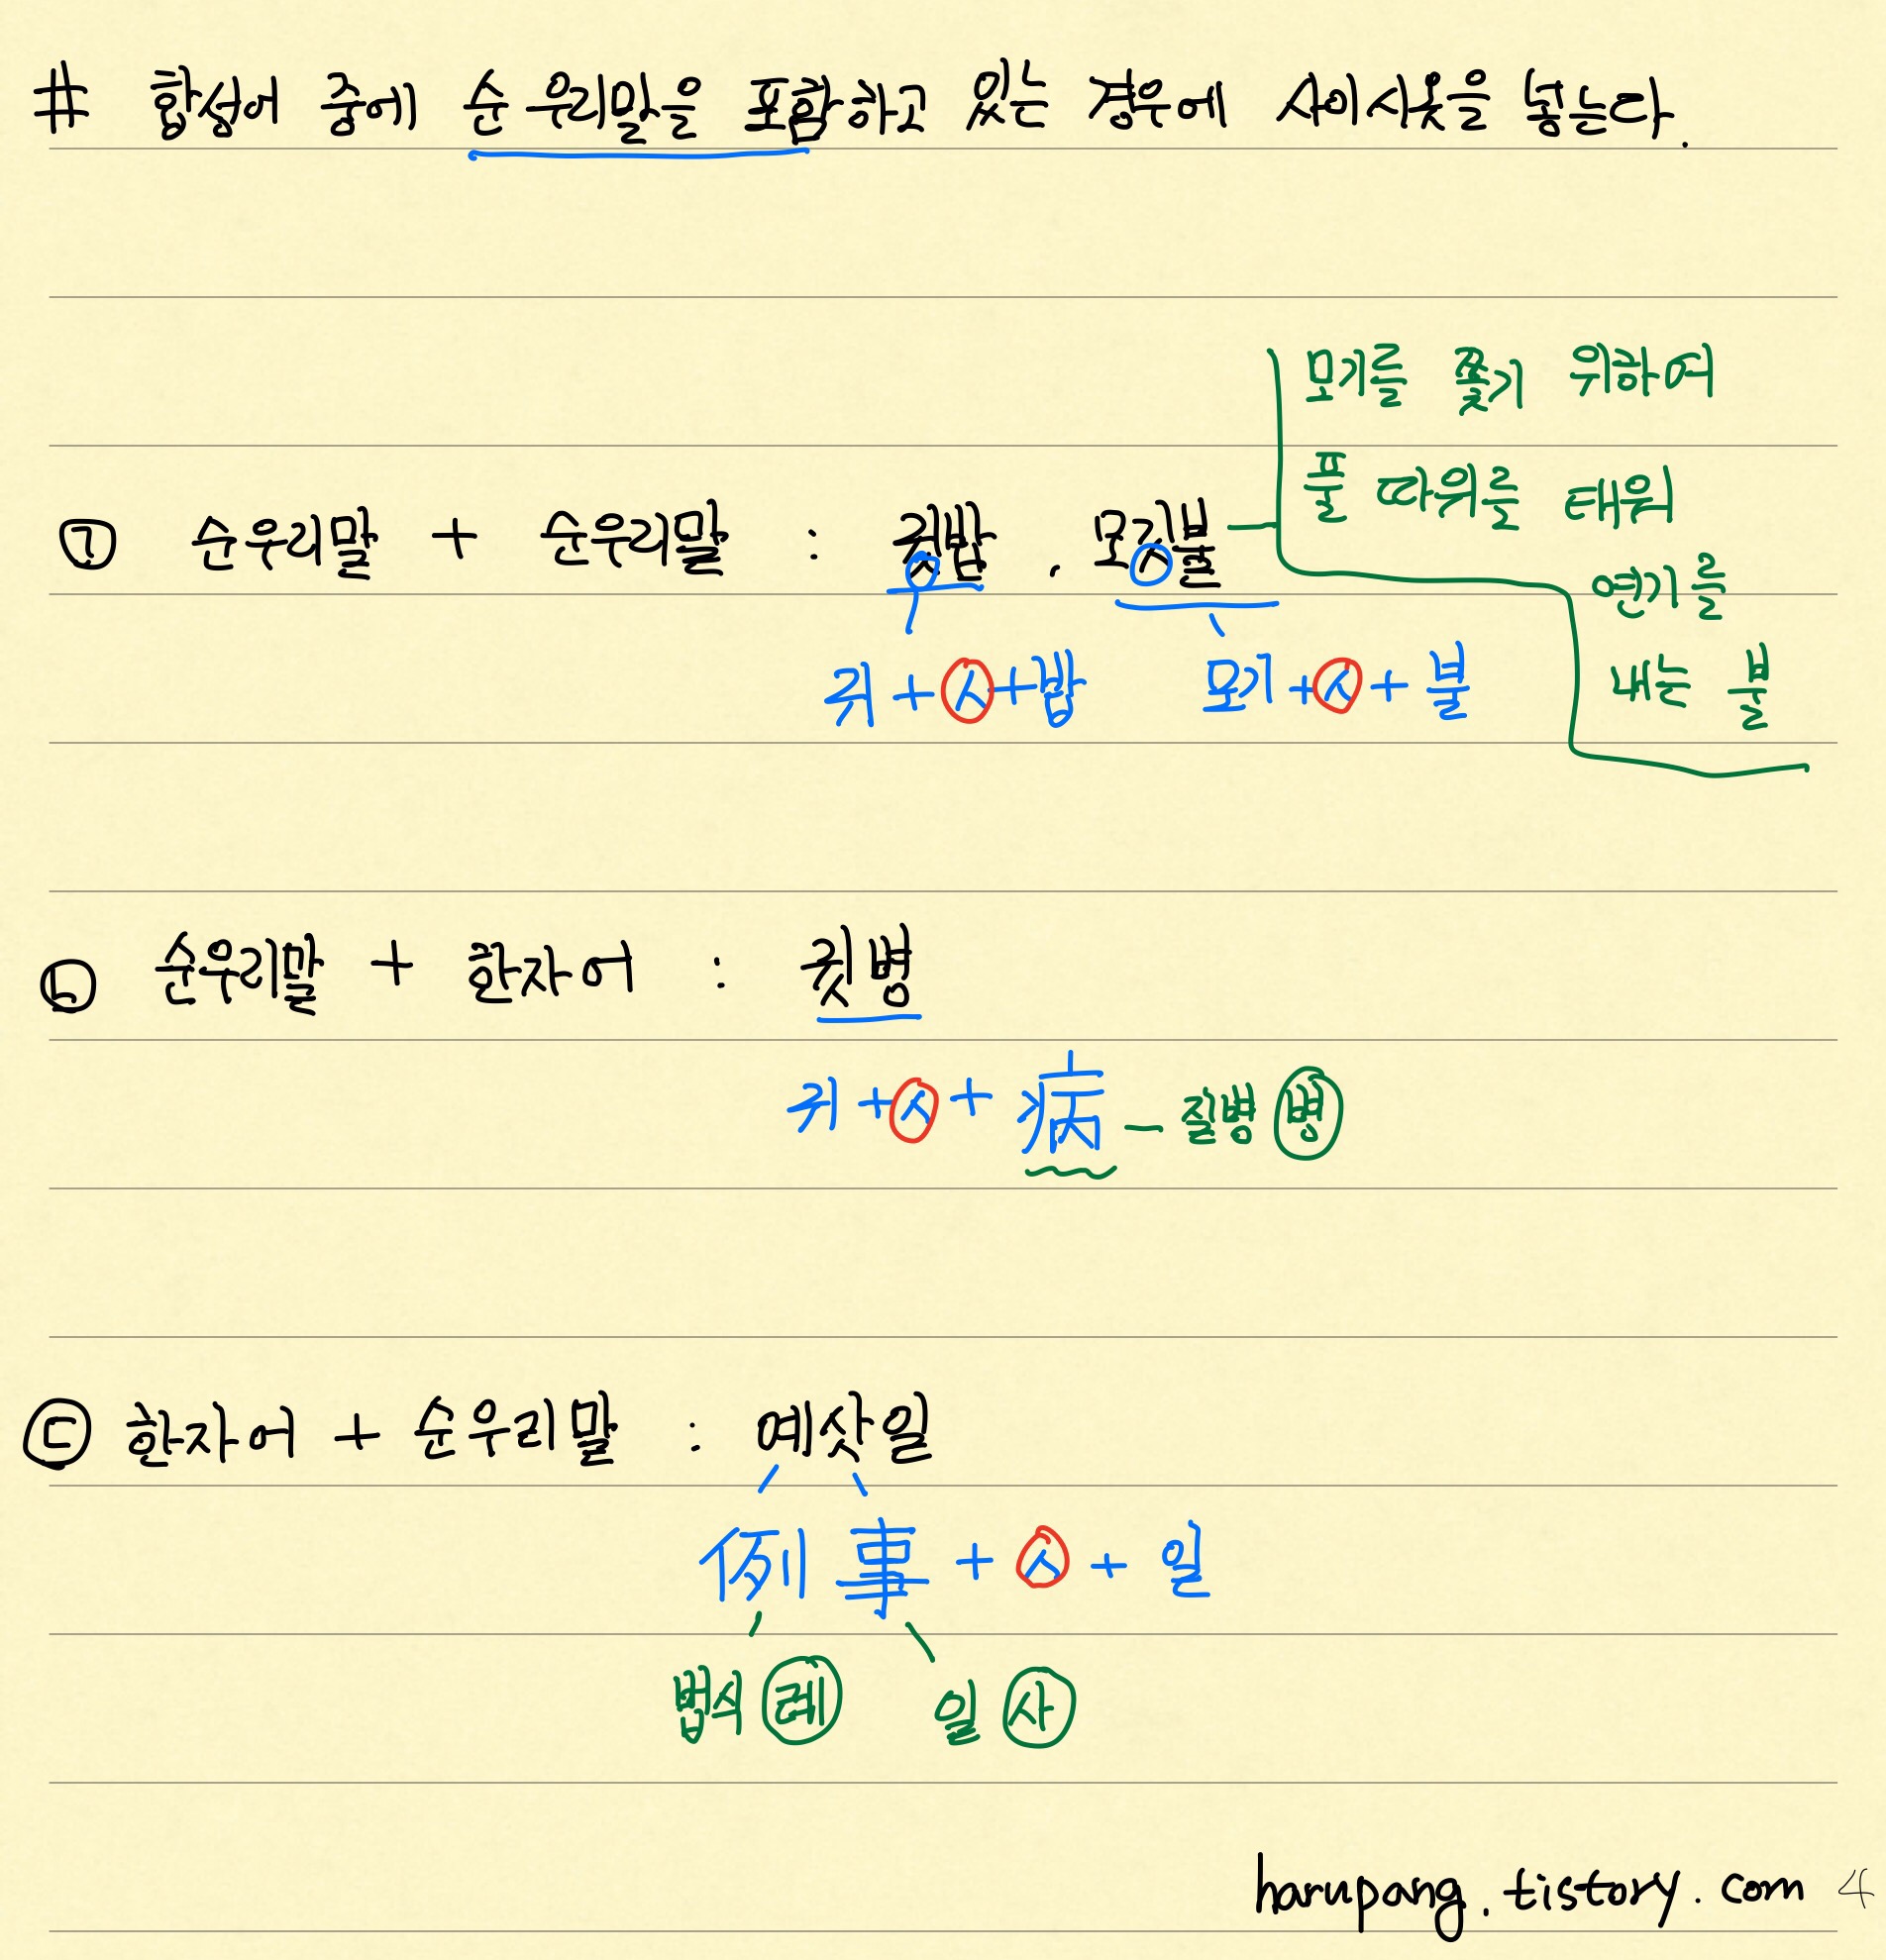 # 합성어 중에 순 우리말을 포함하고 있는 경우에 사이시옷을 넣는다.
모기를 쫓기 위하여
풀 따위를 태워
연기를
내는 불
㉠ 순우리말 + 순우리말 : 귓밥, 모깃불
귀 + ㅅ + 밥 모기 + ㅅ + 불
㉡ 순우리말 + 한자어 : 귓병
귀 + ㅅ + 病 - 질병 병
㉢ 한자어 + 순우리말 : 예삿일
例 事 + ㅅ + 일
법식 례 일 사
harupang.tistory.com 4